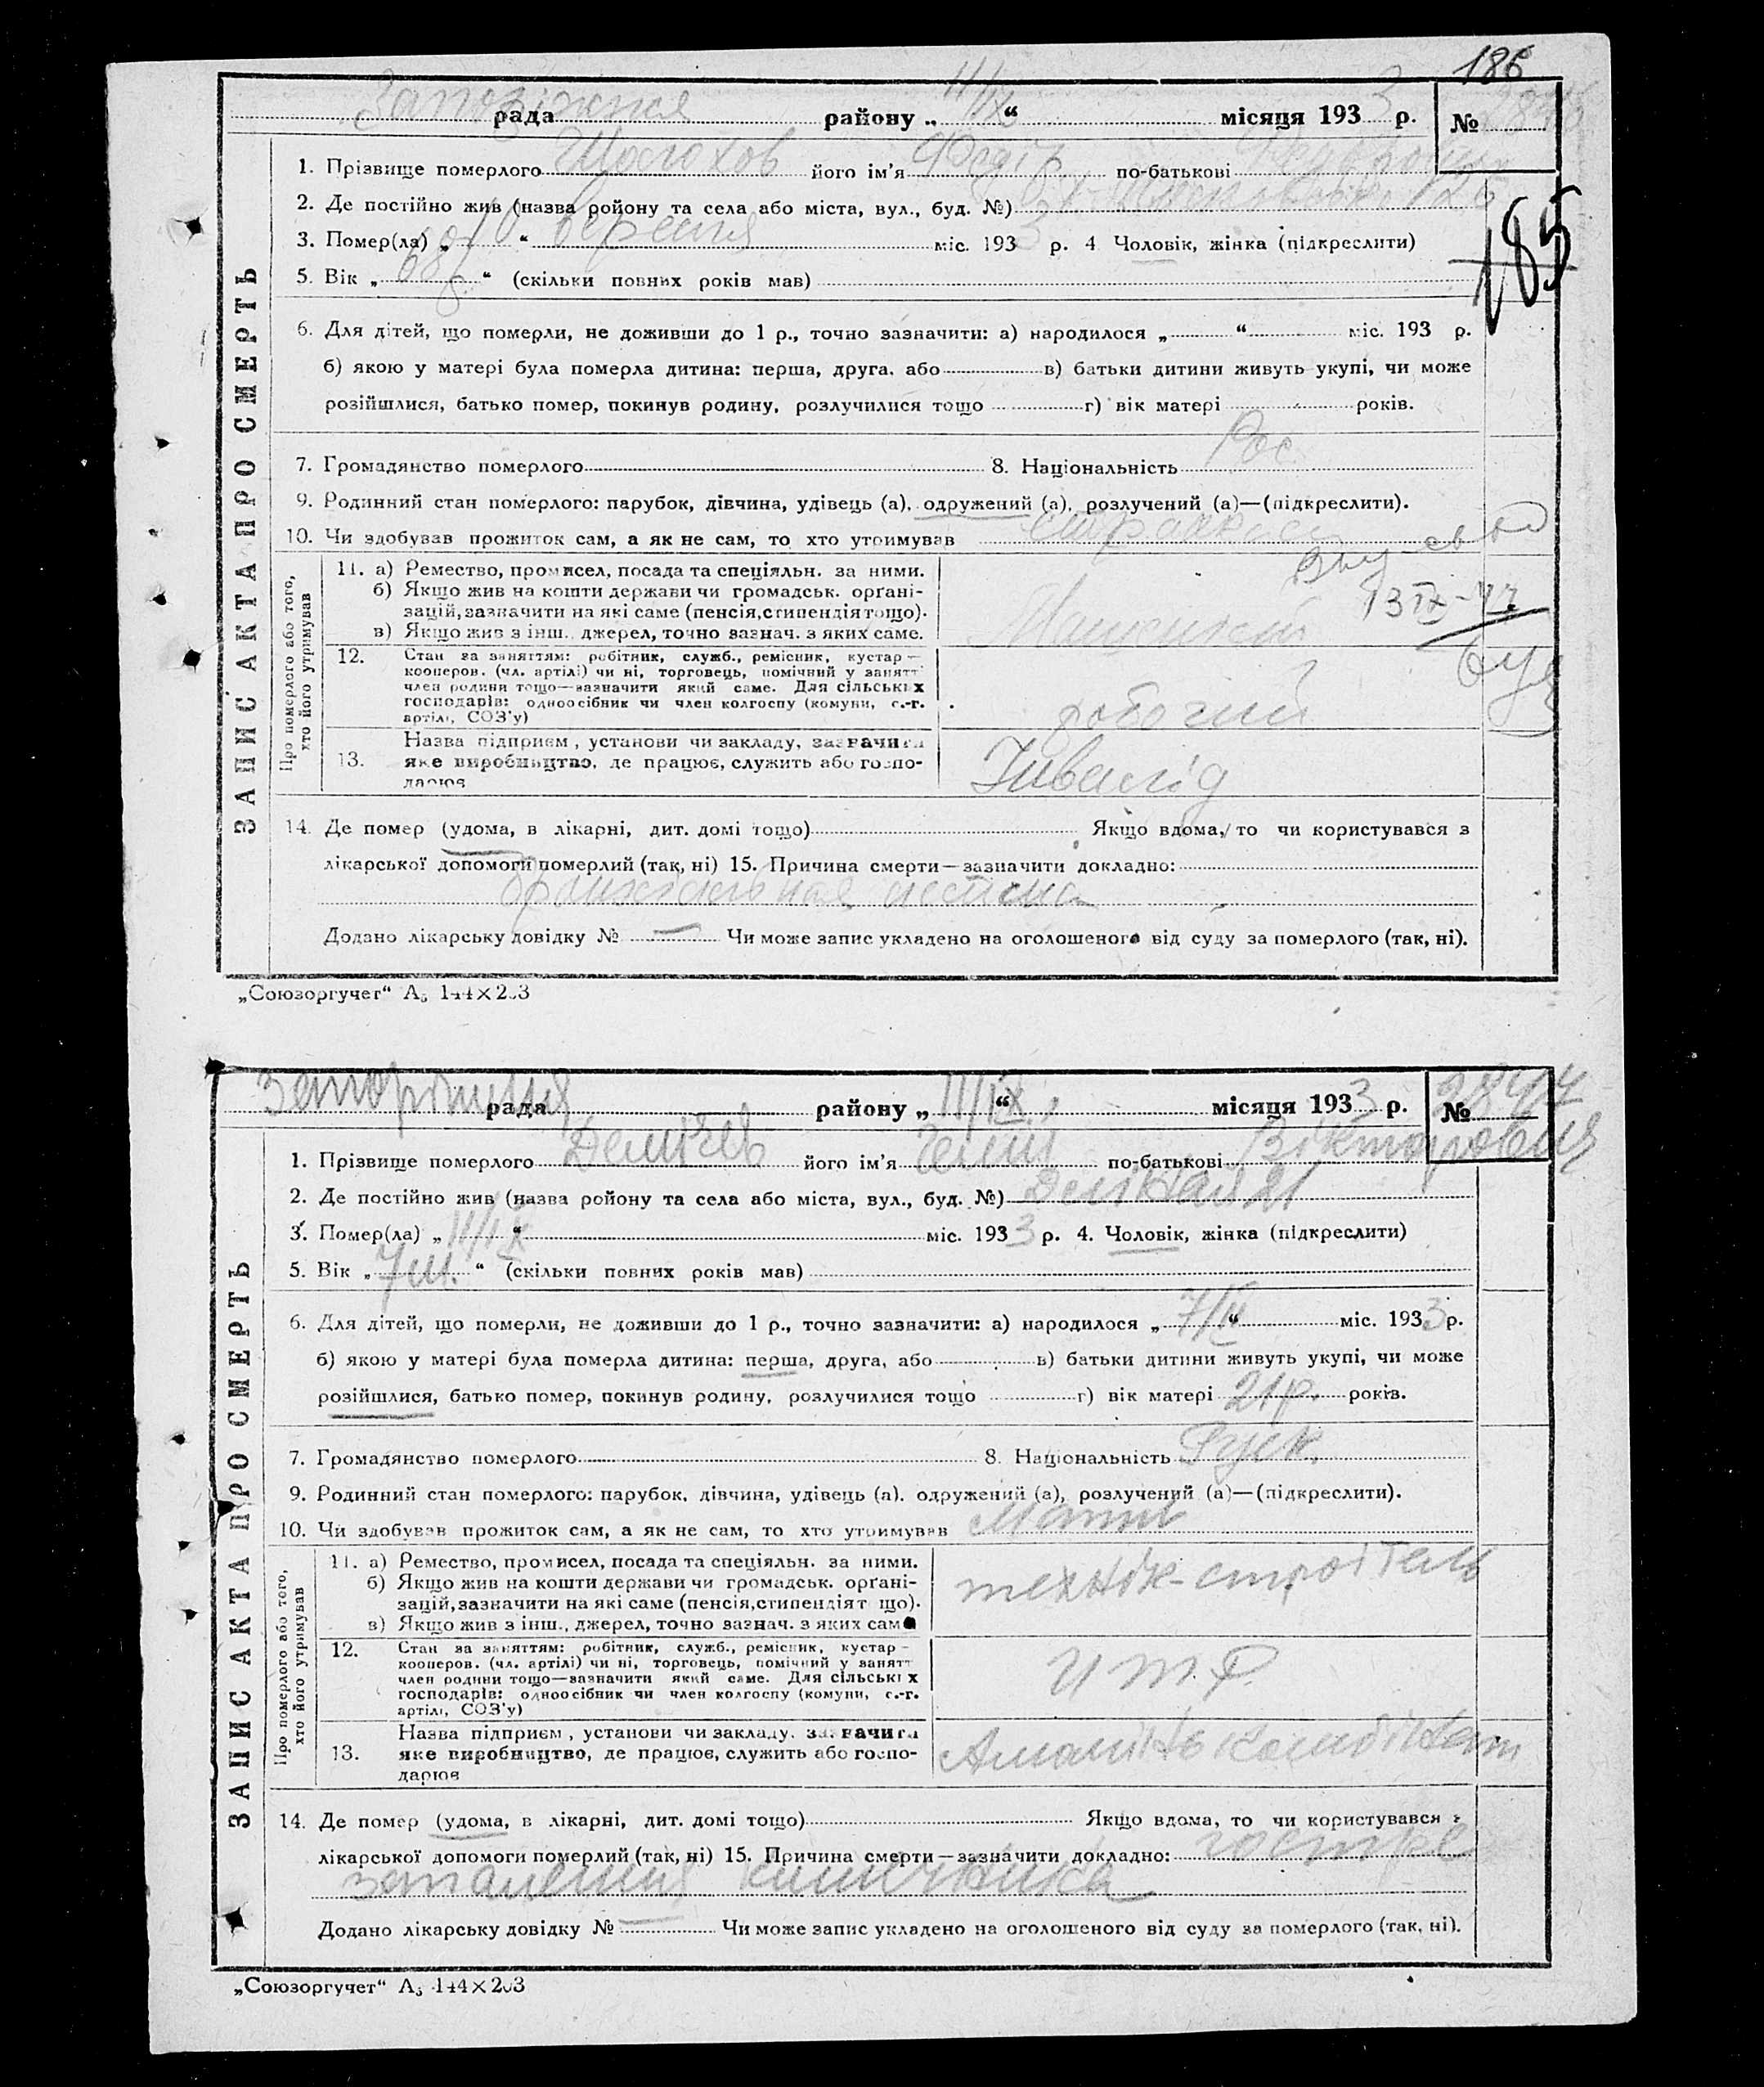 186
Запоріжжя рада району „ 11/IX “ місяця 1933 р. №
1. Прізвище померлого Шолохов його ім'я Федір по-батькові
2. Де постійно жив (назва ройону та села або міста, вул., буд. №)
3. Помер(ла) „ 10 “ вересня міс. 1933 р. 4 Чоловік, жінка (підкреслити)
185
5. Вік „ 68 “ (скільки повних років мав)
6. Для дітей, що померли, не доживши до 1 р., точно зазначити: а) народилося „ “ міс. 193 р.
б) якою у матері була померла дитина: перша, друга, або в) батьки дитини живуть укупі, чи може
розійшлися, батько помер, покинув родину, розлучилися тощо г) вік матері років.
7. Громадянство померлого 8. Національність Рос
9. Родинний стан померлого: парубок, дівчина, удівець (а), одружений (а), розлучений (а)—(підкреслити).
10. Чи здобував прожиток сам, а як не сам, то хто утримував
ЗАПИС АКТА ПРО СМЕРТЬ
Про померлого або того,
хто його утримував
11. а) Ремество, промисел, посада та спеціяльн. за ними.
б) Якщо жив на кошти держави чи громадськ. орґані-
зацій, зазначити на які саме (пенсія, стипендія тощо).
в) Якщо жив з інш., джерел, точно зазнач. з яких саме.
13 IX-47
12. Стан за заняттям: робітник, служб., ремісник, кустар —
кооперов. (чл. артілі) чи ні, торговець, помічний у занятт
член родини тощо—зазначити який саме. Для сільських
господарів: одноосібник чи член колгоспу (комуни, с.-г.
артілі, СОЗ'у)
робочий
13. Назва підприєм, установи чи закладу, зазначити
яке виробництво, де працює, служить або госпо-
дарює
Інвалід
14. Де помер (удома, в лікарні, дит. домі тощо) Якщо вдома, то чи користувався з
лікарської допомоги померлий (так, ні) 15. Причина смерти—зазначити докладно:
бронхіальная астма
Додано лікарську довідку № — Чи може запис укладено на оголошеного від суду за померлого (так, ні).
„Союзоргучет“ А₅ 144×203
Запоріжжя рада району „ 11/IX “ місяця 1933 р. № 2844
1. Прізвище померлого Демічев його ім'я Гений по-батькові Вікторович
2. Де постійно жив (назва ройону та села або міста, вул., буд. №)
3. Помер(ла) „ 11/IX “ міс. 1933 р. 4. Чоловік, жінка (підкреслити)
5. Вік „ 7 м. “ (скільки повних років мав)
6. Для дітей, що померли, не доживши до 1 р., точно зазначити: а) народилося „ 7/II “ міс. 1933 р.
б) якою у матері була померла дитина: перша, друга, або в) батьки дитини живуть укупі, чи може
розійшлися, батько помер, покинув родину, розлучилися тощо г) вік матері 21 р. років.
7. Громадянство померлого 8. Національність Руск.
9. Родинний стан померлого: парубок, дівчина, удівець (а), одружений (а), розлучений (а)—(підкреслити).
10. Чи здобував прожиток сам, а як не сам, то хто утримував Мати
ЗАПИС АКТА ПРО СМЕРТЬ
Про померлого або того,
хто його утримував
11. а) Ремество, промисел, посада та спеціяльн. за ними.
б) Якщо жив на кошти держави чи громадськ. орґані-
зацій, зазначити на які саме (пенсія, стипендія т що).
в) Якщо жив з інш., джерел, точно зазнач. з яких саме
технік-строітель
12. Стан за заняттям: робітник, служб., ремісник, кустар —
кооперов. (чл. артілі) чи ні, торговець, помічний у занятт
член родини тощо—зазначити який саме. Для сільських
господарів: одноосібник чи член колгоспу (комуни, с.-г.
артілі, СОЗ'у)
И Т Р.
13. Назва підприєм, установи чи закладу, зазначити
яке виробництво, де працює, служить або госпо-
дарює
комбінат
14. Де помер (удома, в лікарні, дит. домі тощо) Якщо вдома, то чи користувався з
лікарської допомоги померлий (так, ні) 15. Причина смерти—зазначити докладно: гостре
запалення кишечника
Додано лікарську довідку № — Чи може запис укладено на оголошеного від суду за померлого (так, ні).
„Союзоргучет“ А₅ 144×203